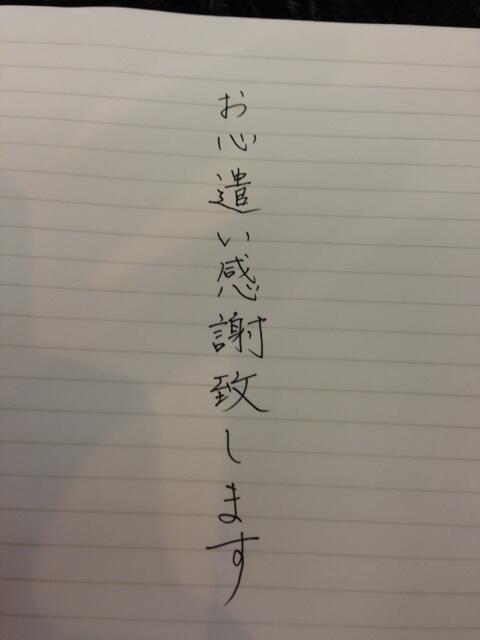 お心遣い感謝致します